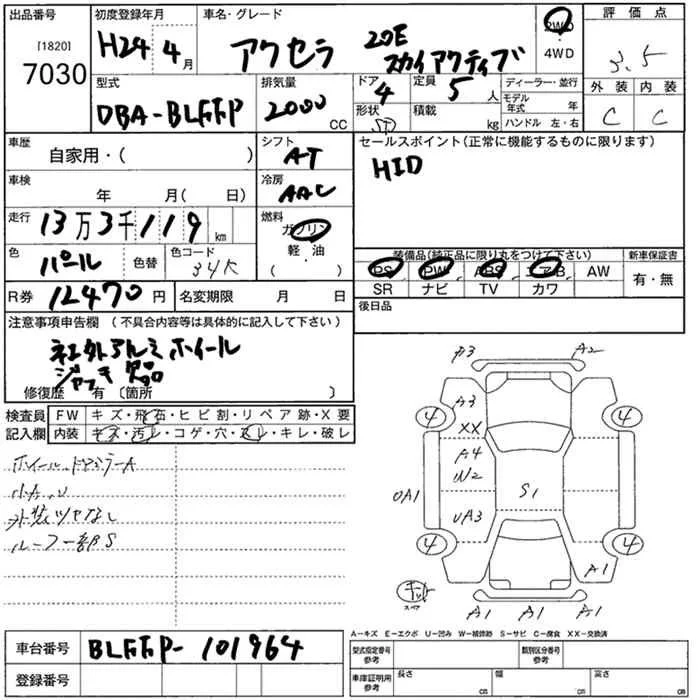 出品番号
[1820]
7030
初度登録年月
H24 4月
車名・グレード
アクセラ
20E
スカイアクティブ
2WD・4WD
評価点
3.5
外装 内装
C C
型式
DBA-BLFFP
排気量
2000 CC
ドア
4
形状
SD
定員
5人
積載
kg
ディーラー・並行
モデル年式 年
ハンドル 左・右
車歴
自家用・( )
シフト
AT
セールスポイント(正常に機能するものに限ります)
HID
車検
年 月( 日)
冷房
AAC
走行
13万3千119km
燃料
ガソリン
軽・油
( )
色
パール
色替
色コード
34K
装備品(純正品に限り丸をつけて下さい)
PS PW ABS エアB AW
SR ナビ TV カワ
新車保証書
有・無
R券 12470円
名変期限 月 日
後日品
注意事項申告欄 (不具合内容等は具体的に記入して下さい)
社外アルミホイール
ジャッキ欠品
修復歴 有 〔箇所 〕
検査員記入欄
FW キズ・飛石・ヒビ割・リペア跡・X要
内装 キズ・汚レ・コゲ・穴・スレ・キレ・破レ
ホイール、ドアミラーA
小A、U
外装ツヤなし
ルーフ一部S
P3 A2
A3
XX
A4
W2
UA1
UA3
S1
4 4
4 4
A1
キット
スペア
A1 A1 A1
A-キズ E-エクボ U-凹み W-補修跡 S-サビ C-腐食 XX-交換済
車台番号 BLFFP-101964
登録番号
型式指定番号
参考
類別区分番号
参考
車庫証明用
参考
長さ cm
幅 cm
高さ cm